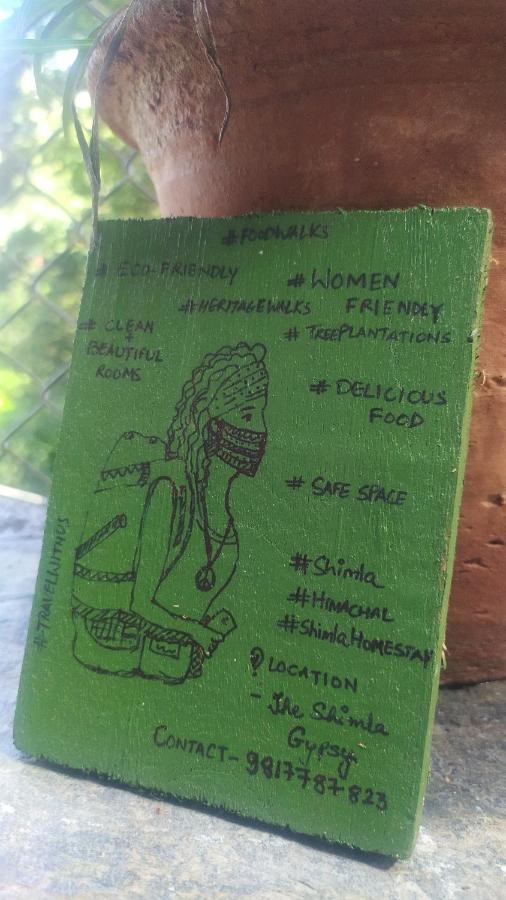 #FOODWALKS
# ECO-FRIENDLY
# WOMEN
FRIENDLY
#HERITAGEWALKS
# TREEPLANTATIONS
# CLEAN
+
BEAUTIFUL
ROOMS
# DELICIOUS
FOOD
# SAFE SPACE
#TRAVELWITHUS
#Shimla
#HIMACHAL
#ShimlaHOMESTAY
LOCATION
- The Shimla
Gypsy
CONTACT- 9817787823